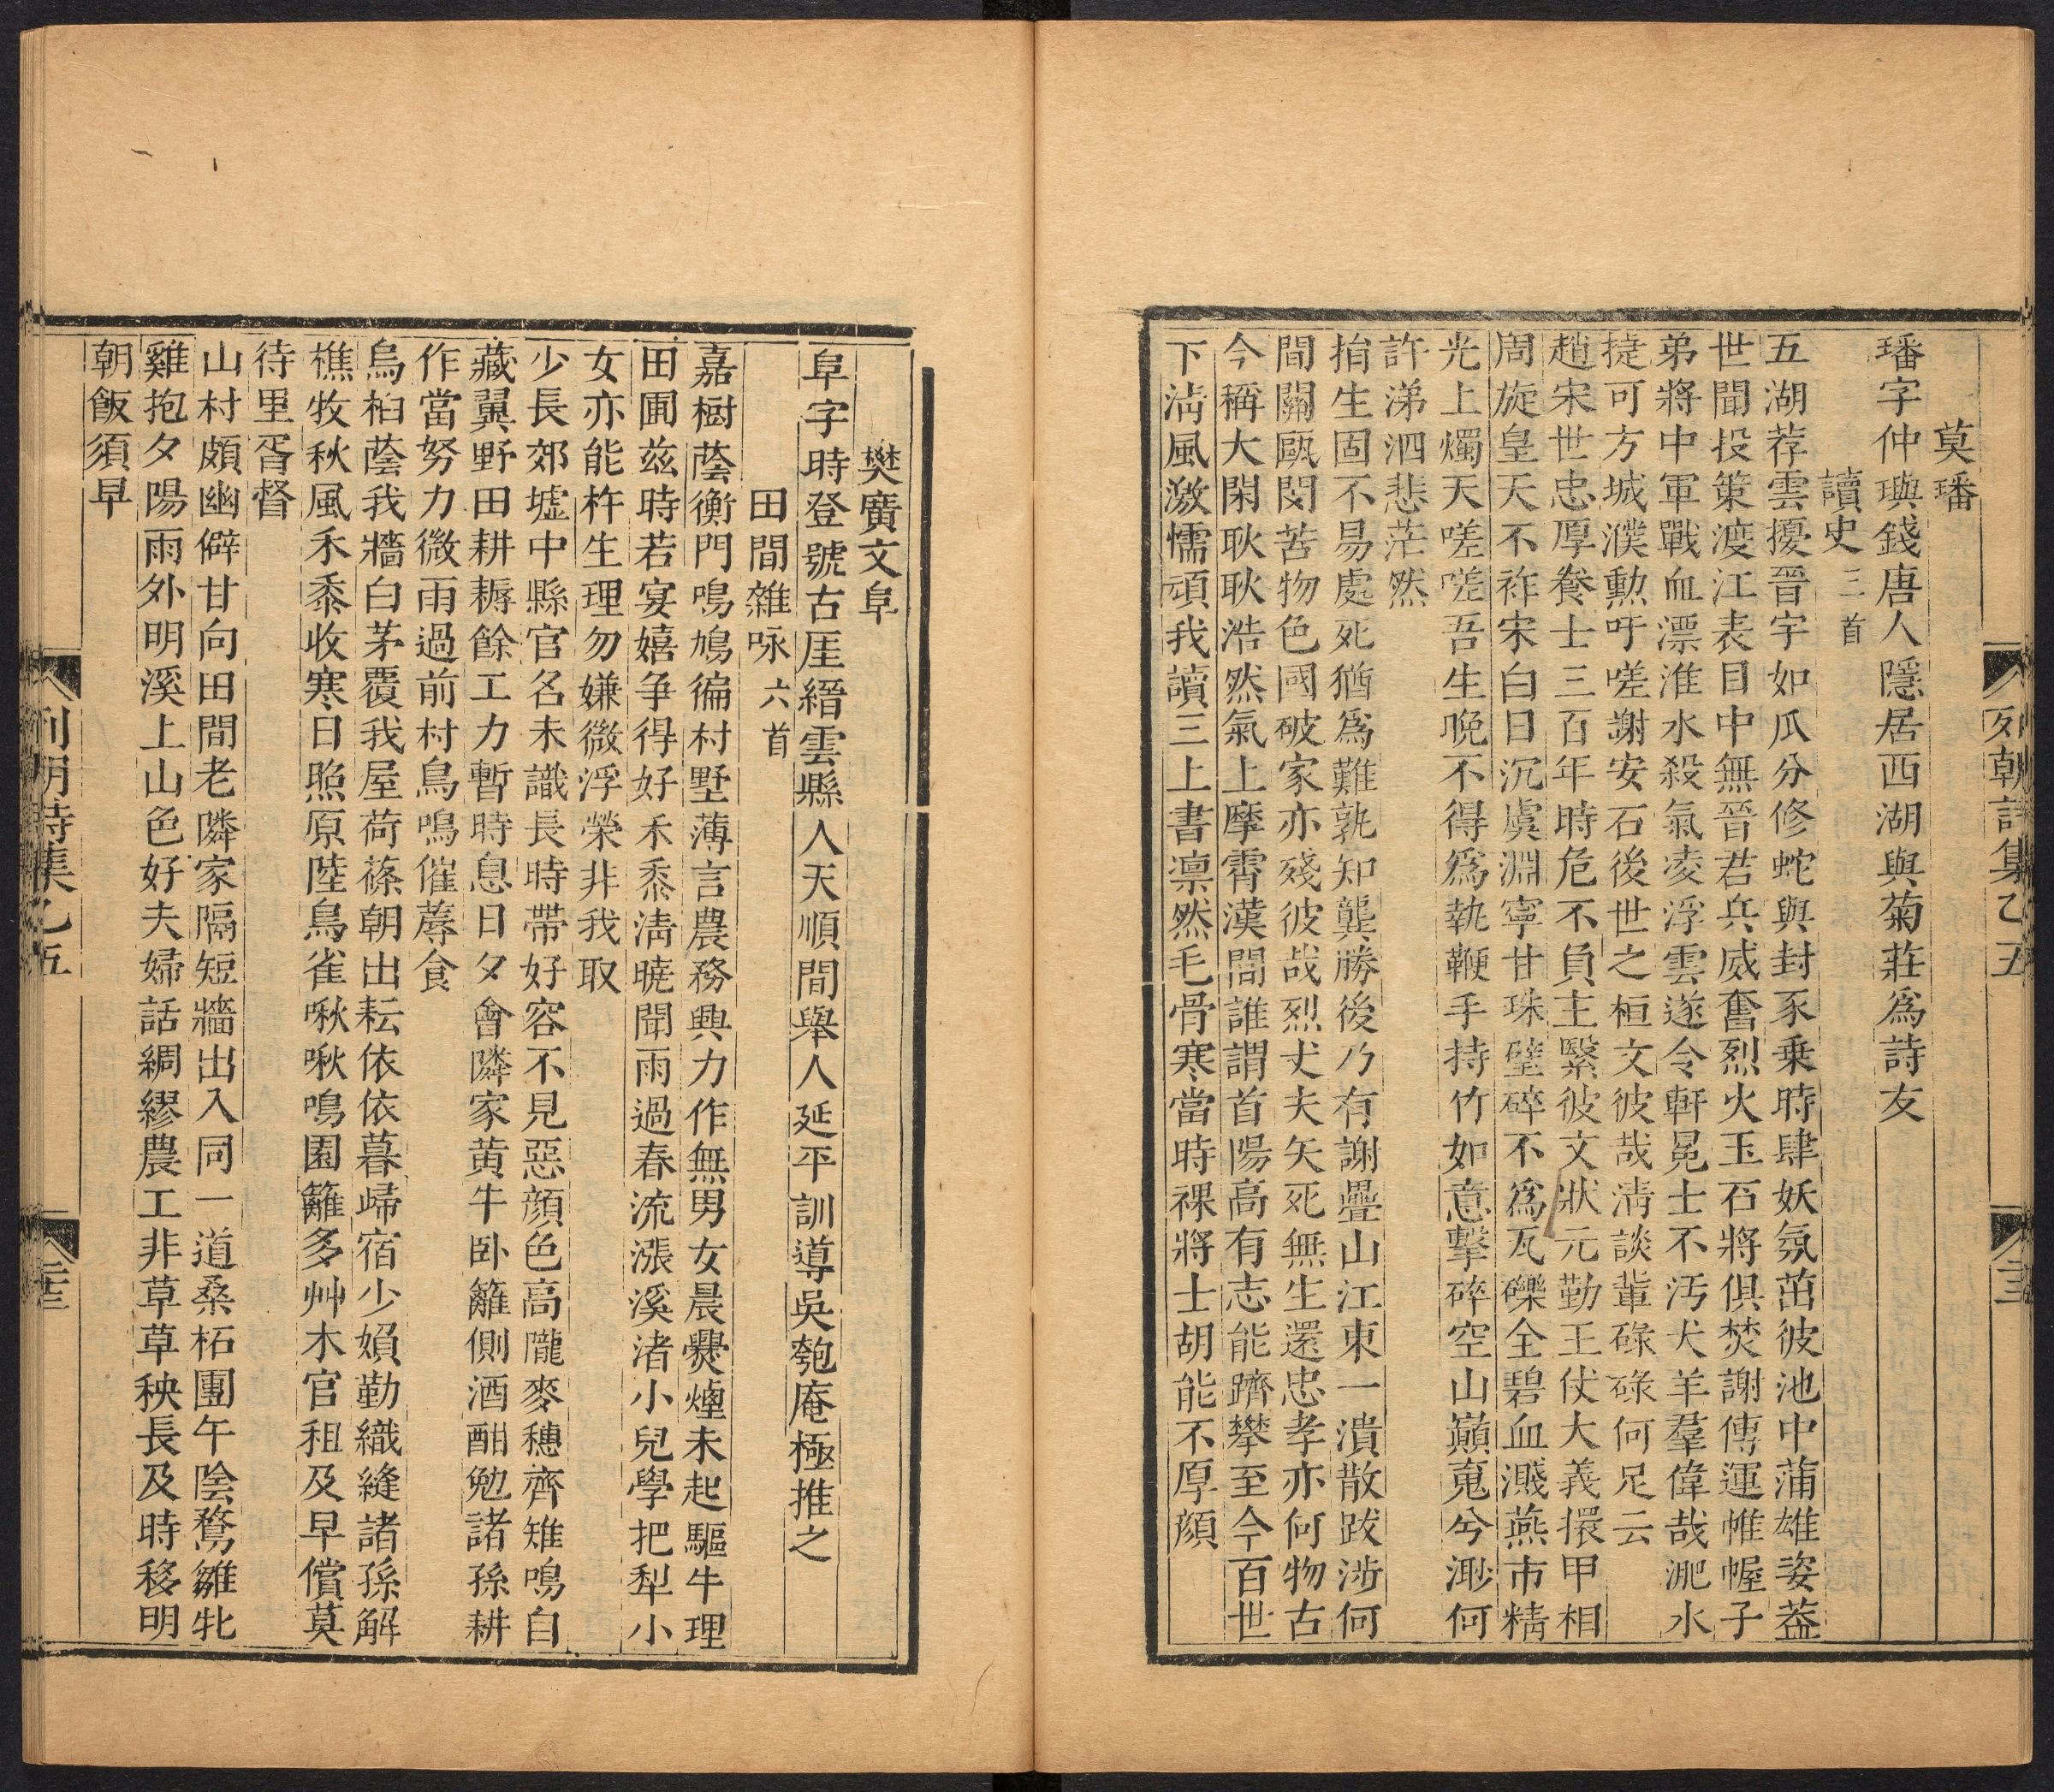 列朝詩集乙五
莫璠
璠字仲璵錢唐人隱居西湖與菊莊爲詩友
讀史三首
五湖荐雲擾晉宇如瓜分修蛇與封豕乗時肆妖氛茁彼池中蒲雄姿蓋
世聞投箠渡江表目中無晉君兵威奮烈火玉石將俱焚謝傳運帷幄子
弟將中軍戰血漂淮水殺氣凌浮雲遂令軒冕士不汚犬羊羣偉哉淝水
捷可方城濮勲吁嗟謝安石後世之桓文彼哉淸談輩碌碌何足云
趙宋世忠厚養士三百年時危不負主繄彼文狀元勤王仗大義擐甲相
周旋皇天不祚宋白日沉虞淵寧甘珠璧碎不爲瓦礫全碧血濺燕市精
光上燭天嗟嗟吾生晚不得爲執鞭手持竹如意擊碎空山巔䰟兮渺何
許涕泗悲茫然
捐生固不易處死猶爲難孰知龔勝後乃有謝疊山江東一潰散跋涉何
間關甌閔苦物色國破家亦殘彼哉烈丈夫矢死無生還忠孝亦何物古
今稱大閑耿耿浩然氣上摩霄漢間誰謂首陽高有志能躋攀至今百世
下淸風激懦頑我讀三上書凛然毛骨寒當時裸將士胡能不厚顔
樊廣文阜
阜字時登號古厓縉雲縣人天順間舉人延平訓導吳匏庵極推之
田間雜咏六首
嘉樹蔭衡門鳴鳩徧村墅薄言農務興力作無男女晨爨煙未起驅牛理
田圃兹時若宴嬉爭得好禾黍淸曉聞雨過春流漲溪渚小兒學把犁小
女亦能杵生理勿嫌微浮榮非我取
少長郊墟中縣官名未識長時帶好容不見惡顔色高隴麥穗齊雉鳴自
藏翼野田耕耨餘工力暫時息日夕會隣家黄牛卧籬側酒酣勉諸孫耕
作當努力微雨過前村鳥鳴催蓐食
烏桕蔭我牆白茅覆我屋荷蓧朝出耘依依暮歸宿少媍勤織縫諸孫解
樵牧秋風禾黍收寒日照原陸鳥雀啾啾鳴園籬多艸木官租及早償莫
待里胥督
山村頗幽僻甘向田間老隣家隔短牆出入同一道桑柘團午陰鶩雛牝
雞抱夕陽雨外明溪上山色好夫婦話綢繆農工非草草秧長及時移明
朝飯須早
列朝詩集乙五